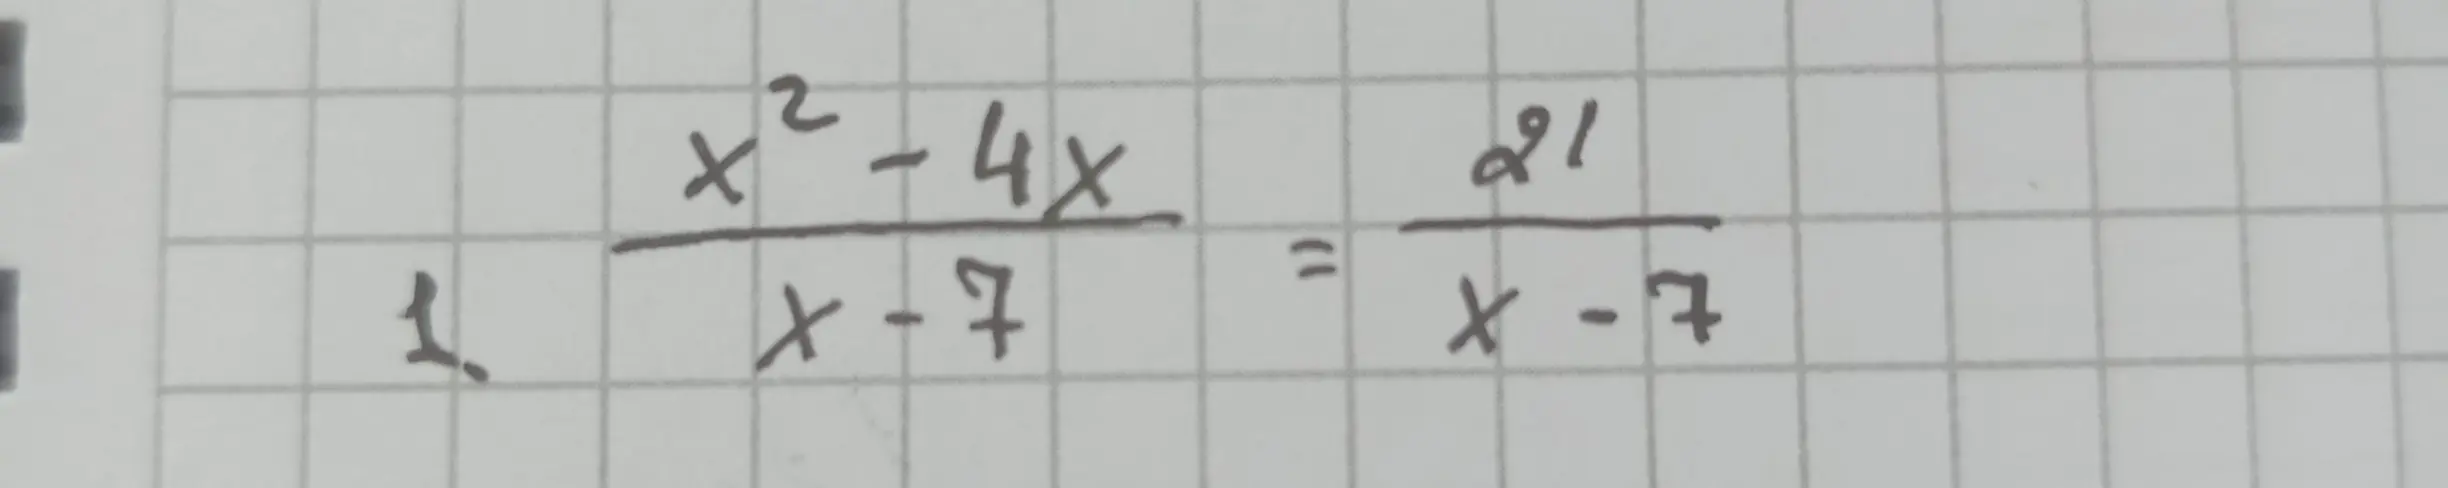 1. \frac{x^2 - 4x}{x - 7} = \frac{21}{x - 7}